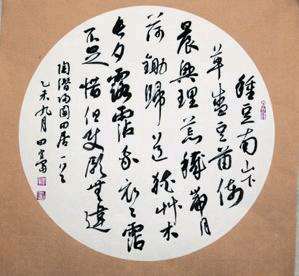 種豆南山下
草盛豆苗稀
晨興理荒穢帶月
荷鋤歸道狹艸木
長夕露霑我衣〻霑
不足惜但使願無違
陶潛歸園田居
乙未九月